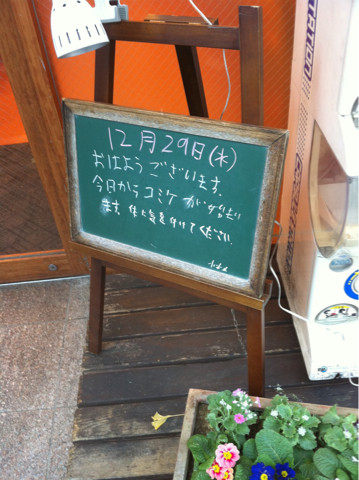 12月29日(木)
おはようございます。
今日からコミケがはじまり
ます。体に気を付けてください。
STATION